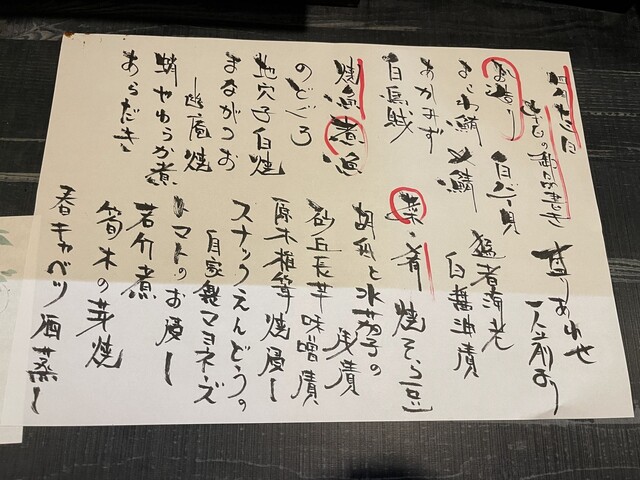 四月十三日
本日の御品書き
お造り
盛りあわせ
一人前より
白バイ貝
よこわ鯛〆鯖
猛者海老
白醤油漬
あかみず
白烏賊
焼魚煮魚
のどぐろ
地穴子白焼
まながつお
幽庵焼
蛸やわらか煮
あらだき
菜・肴
焼そら豆
胡瓜と水茄子の
浅漬
砂丘長芋味噌漬
原木椎茸焼浸し
スナックえんどうの
自家製マヨネーズ
トマトのお浸し
若竹煮
筍木の芽焼
春キャベツ酒蒸し